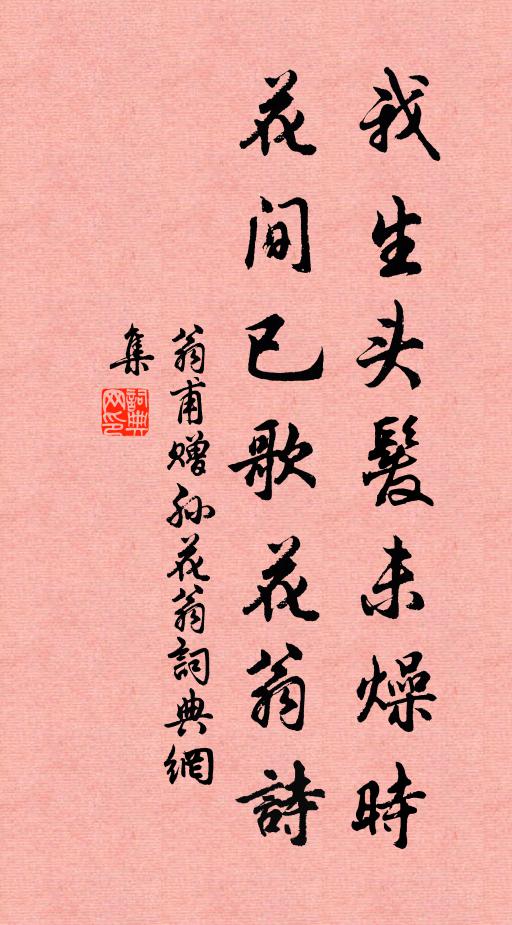 我生头髮未燥時
花间已歌花翁詩
翁甫赠孙花翁詞典網
集
詞典网印